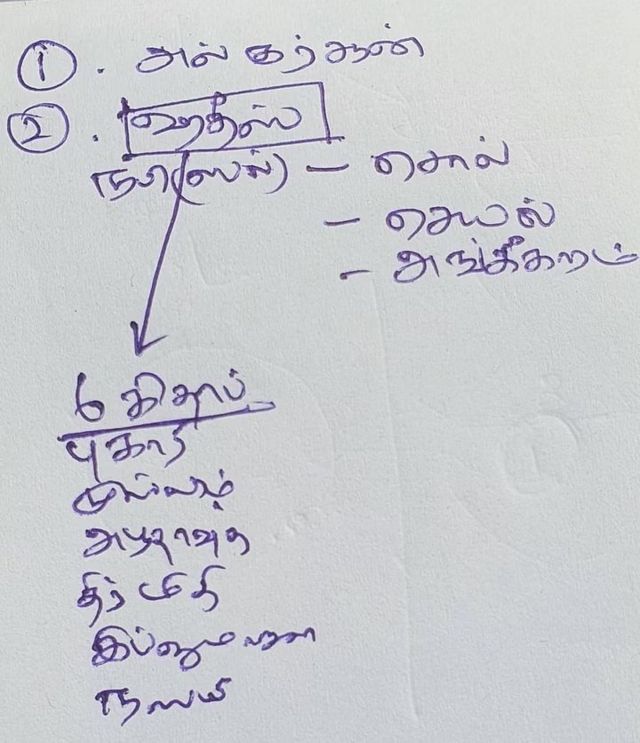 1. அல் குர்ஆன்
2. ஹதீஸ்
நபி(ஸல்) – சொல்
– செயல்
– அங்கீகாரம்
6 கிதாப்
புகாரி
முஸ்லிம்
அபூதாவுத்
திர்மிதி
இப்னுமாஜா
நஸயி